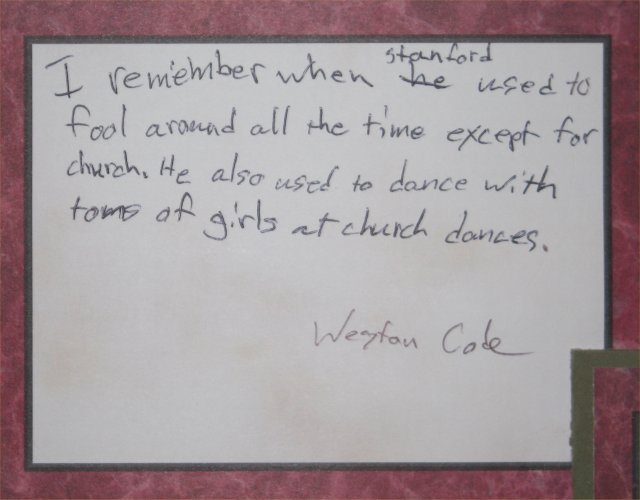 I remember when stanford he used to
fool around all the time except for
church. He also used to dance with
toms of girls at church dances.
Weston Cole